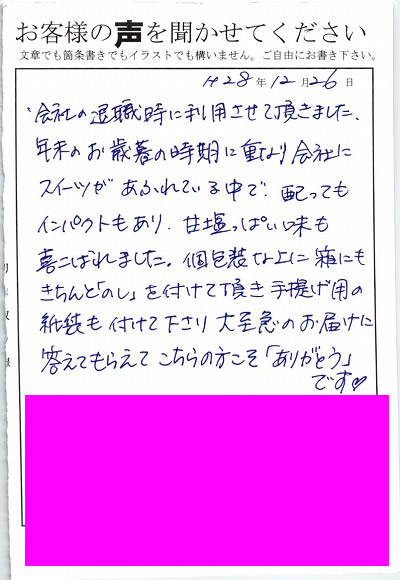 お客様の声を聞かせてください
文章でも箇条書きでもイラストでも構いません。ご自由にお書き下さい。
H28年12月26日
会社の退職時に利用させて頂きました。
年末のお歳暮の時期に重なり会社に
スイーツがあふれている中で、配っても
インパクトもあり、甘塩っぱい味も
喜こばれました。個包装な上に箱にも
きちんと「のし」を付けて頂き手提げ用の
紙袋も付けて下さり大至急のお届けに
答えてもらえてこちらの方こそ「ありがとう」
です♡